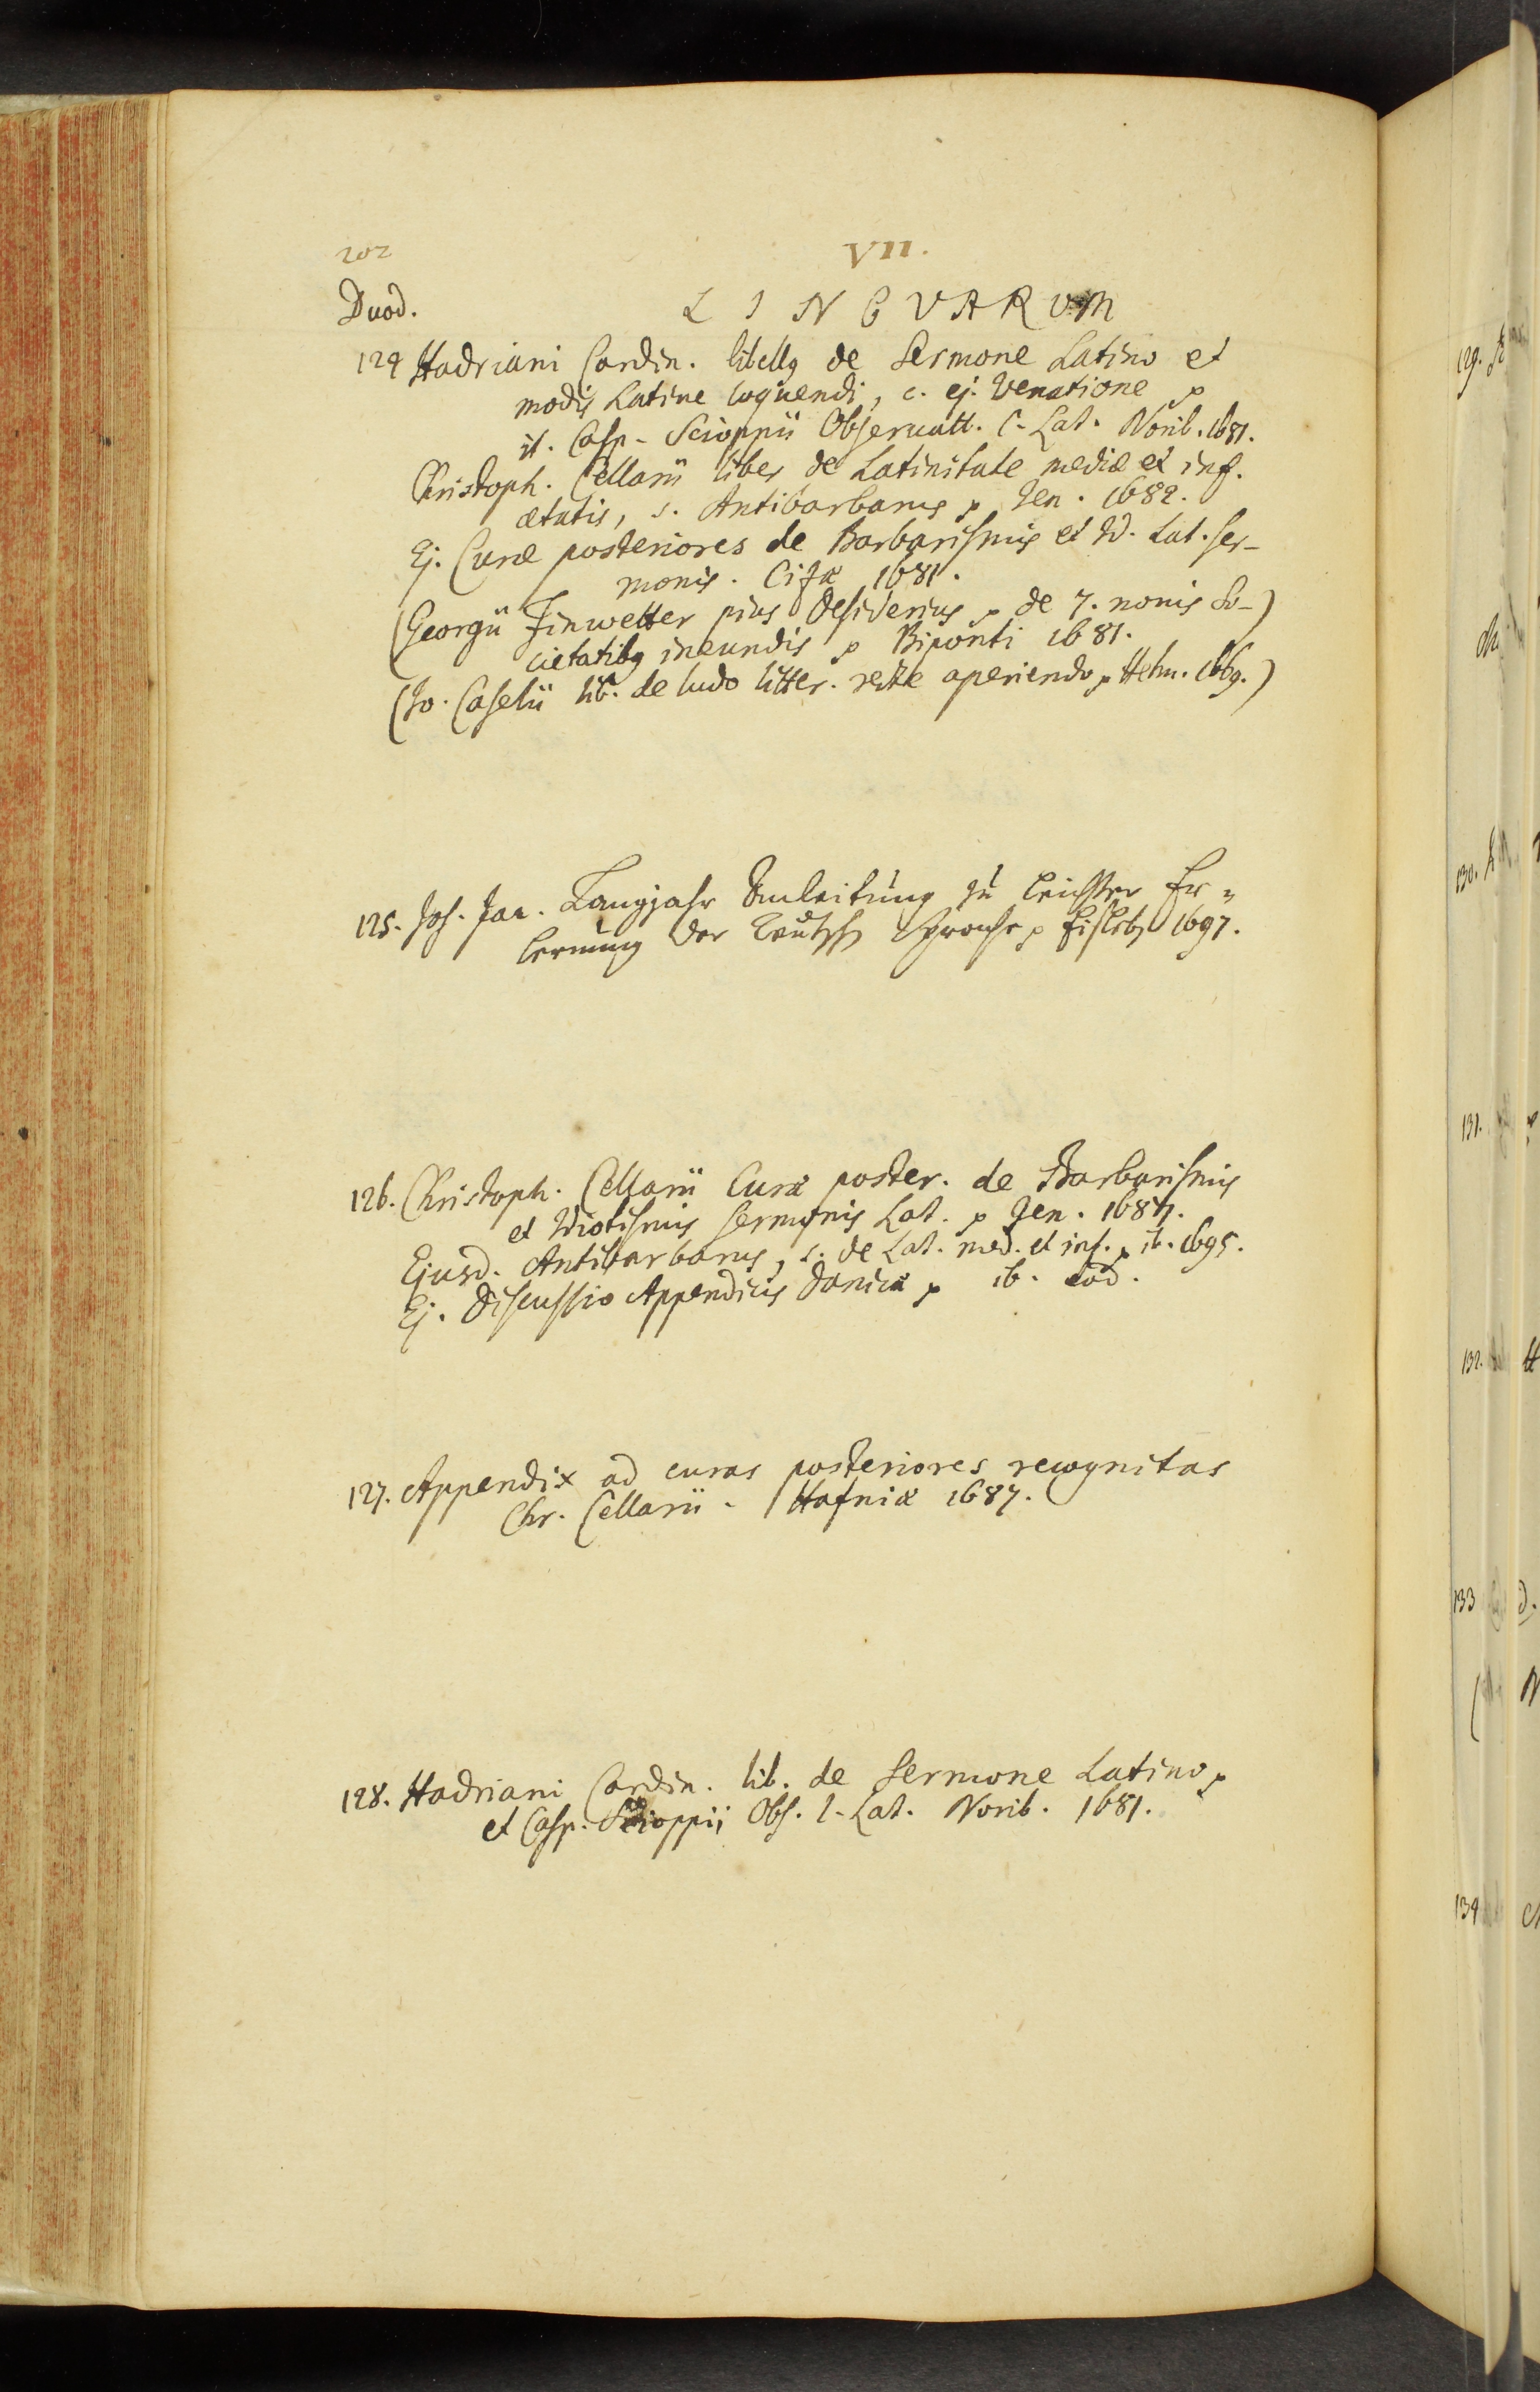 202
VII.
Duod.
LINGVARVM
124 Hadriani Cardin. libellq de Sermone Latino et
modis Latine loquendi, c. ej. Venatione p
it. Casp. Scioppii Observatt. l. Lat. Norib. 1681.
Christoph. Cellarii liber de Latinitate mediæ et inf.
ætatis, s. Antibarbarus p Jen. 1682.
Ej. Curæ posteriores de Barbarismis et Id. Lat. ser-
monis. Cizæ 1681.
(Georgii Finwetter pius Desiderius p de 7. nonis So-)
cietatibq ineundis p Biponti 1681.
(Jo. Caselii lib. de ludo litter. recte aperiendo p Helm. 1669.)
125. Joh. Jac. Langjahr Anleitung zu leichter Er=
lernung der Teutsch Sprache p Eisleb. 1697.
126. Christoph. Cellarii Curæ poster. de Barbarismis
et Idiotismis sermonis Lat. p Jen. 1687.
Ejusd. Antibarbarus, s. de Lat. med. et inf. p ib. 1695.
Ej. Discussio Appendicis Danicæ p ib. eod.
127. Appendix ad curas posteriores recognitas
Chr. Cellarii. Hafniæ 1687.
128. Hadriani Cardin. lib. de Sermone Latino p
et Casp. Scioppii Obs. l. Lat. Norib. 1681.
129.
130.
131.
132.
133
134